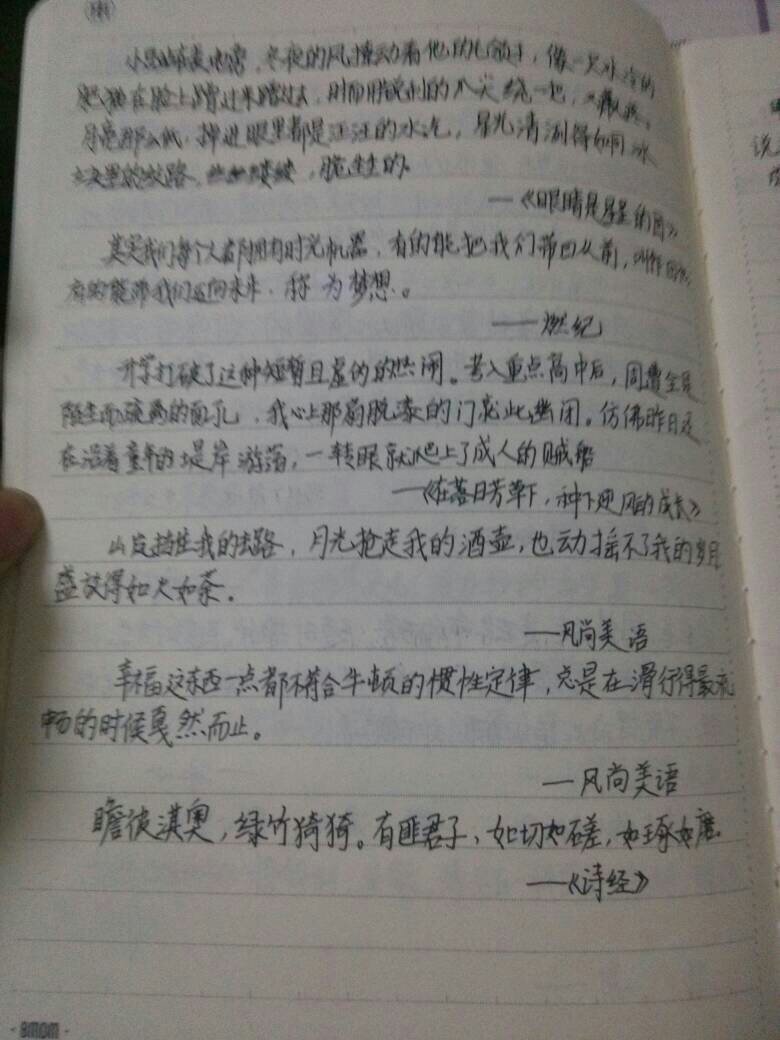 冬夜的风撞动着他的领子,像一只冰冷的
肥猫在脸上蹭过来蹭过去,时而用锐利的爪尖挠一把,又
月亮那么低,掉进眼里都是汪汪的水汽,星光清冽得如同冰
的纹路,脆生生的
—《眼睛是星星的》
其实我们每个人都拥有时光机器,有的能把我们带回从前,叫作
有的能带我们迈向未来,称为梦想。
——燃纪
升学打破了这种短暂且虚伪的热闹。考入重点高中后,周遭全是
陌生而疲惫的面孔,我心上那扇脱漆的门就此幽闭。仿佛昨日还
在沿着童年的堤岸游荡,一转眼就爬上了成人的贼船
—《在落日芳草下,种下迎风的成长》
山岚挡住我的去路,月光抢走我的酒壶,也动摇不了我的岁月
盛放得如火如荼。
——风尚美语
幸福这东西一点都不符合牛顿的惯性定律,总是在滑行得最流
畅的时候戛然而止。
—风尚美语
瞻彼淇奥,绿竹猗猗。有匪君子,如切如磋,如琢如磨
——《诗经》
- BMOM -